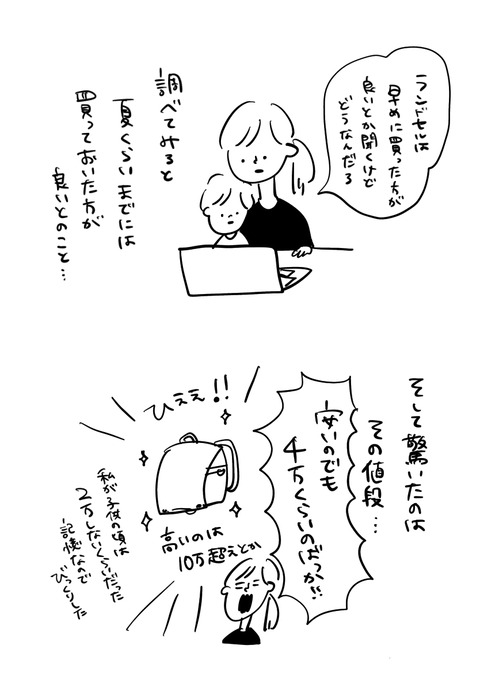 ランドセルは
早めに買った方が
良いとか聞くけど
どうなんだろ
調べてみると
夏くらいまでには
買っておいた方が
良いとのこと…
そして驚いたのは
その値段…
安いのでも
4万くらいのばっか!!
ひええ!!
高いのは
10万超えとか
私が子供の頃は
2万しないくらいだった
記憶なので
びっくりした